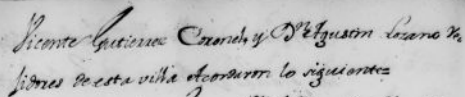 Vicente Gutierrez Coronel, y Dn. Agustin Lozano Re-
sidores de esta villa Acordaron lo siguiente=